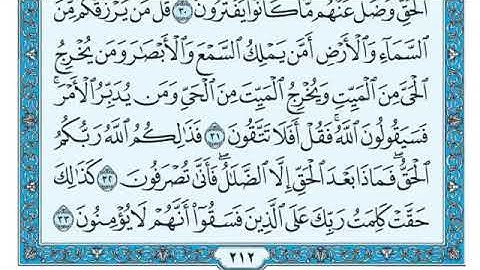 ٱلۡحَقِّۖ وَضَلَّ عَنۡهُم مَّا كَانُواْ يَفۡتَرُونَ ٣٠ قُلۡ مَن يَرۡزُقُكُم مِّنَ
ٱلسَّمَآءِ وَٱلۡأَرۡضِ أَمَّن يَمۡلِكُ ٱلسَّمۡعَ وَٱلۡأَبۡصَٰرَ وَمَن يُخۡرِجُ
ٱلۡحَيَّ مِنَ ٱلۡمَيِّتِ وَيُخۡرِجُ ٱلۡمَيِّتَ مِنَ ٱلۡحَيِّ وَمَن يُدَبِّرُ ٱلۡأَمۡرَۚ
فَسَيَقُولُونَ ٱللَّهُۚ فَقُلۡ أَفَلَا تَتَّقُونَ ٣١ فَذَٰلِكُمُ ٱللَّهُ رَبُّكُمُ
ٱلۡحَقُّۖ فَمَاذَا بَعۡدَ ٱلۡحَقِّ إِلَّا ٱلضَّلَٰلُۖ فَأَنَّىٰ تُصۡرَفُونَ ٣٢ كَذَٰلِكَ
حَقَّتۡ كَلِمَتُ رَبِّكَ عَلَى ٱلَّذِينَ فَسَقُوٓاْ أَنَّهُمۡ لَا يُؤۡمِنُونَ ٣٣
٢١٢